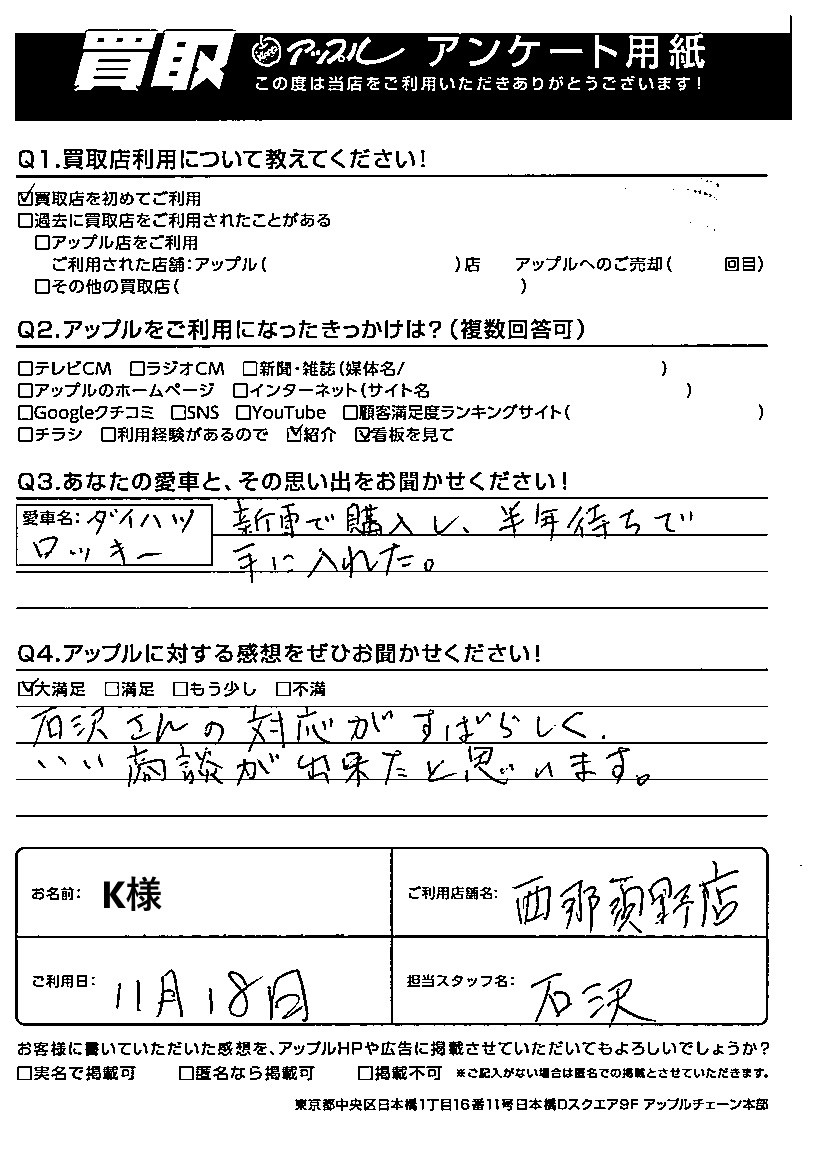 買取 アップル アンケート用紙
この度は当店をご利用いただきありがとうございます!
Q1.買取店利用について教えてください!
☑買取店を初めてご利用
□過去に買取店をご利用されたことがある
□アップル店をご利用
ご利用された店舗:アップル( )店 アップルへのご売却( 回目)
□その他の買取店( )
Q2.アップルをご利用になったきっかけは?(複数回答可)
□テレビCM □ラジオCM □新聞・雑誌(媒体名/ )
□アップルのホームページ □インターネット(サイト名 )
□Googleクチコミ □SNS □YouTube □顧客満足度ランキングサイト( )
□チラシ □利用経験があるので ☑紹介 ☑看板を見て
Q3.あなたの愛車と、その思い出をお聞かせください!
愛車名:ダイハツ
ロッキー
新車で購入し、半年待ちで
手に入れた。
Q4.アップルに対する感想をぜひお聞かせください!
☑大満足 □満足 □もう少し □不満
石沢さんの対応がすばらしく、
いい商談が出来たと思います。
お名前: K様 ご利用店舗名: 西那須野店
ご利用日: 11月18日 担当スタッフ名: 石沢
お客様に書いていただいた感想を、アップルHPや広告に掲載させていただいてもよろしいでしょうか?
□実名で掲載可 □匿名なら掲載可 □掲載不可 ※ご記入がない場合は匿名での掲載とさせていただきます。
東京都中央区日本橋1丁目16番11号日本橋Dスクエア9F アップルチェーン本部